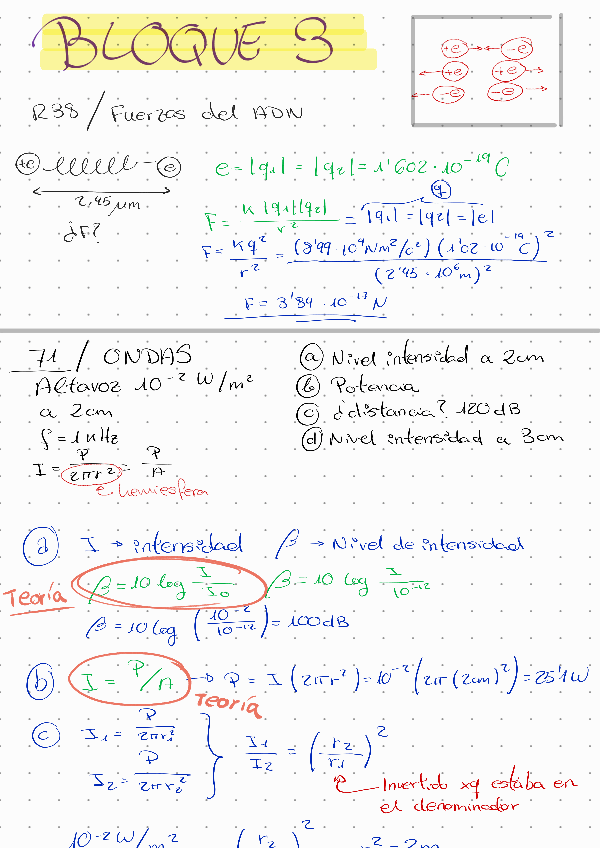 BLOQUE 3
+e -e
+e +e
-e -e
R38 / Fuerzas del ADN
+e e
2,45 μm
¿F?
e = |q1| = |q2| = 1'602 · 10^-19 C
F = K |q1||q2| / r^2 = |q1| = |q2| = |e|
q
F = K q^2 / r^2 = (8'99 · 10^9 Nm^2/c^2) (1'02 10^-19 C)^2 / (2'45 · 10^6 m)^2
F = 3'84 · 10^-17 N
71 / ONDAS
Altavoz 10^-2 W/m^2
a 2cm
f = 1 kHz
I = P / 2πr^2 = P / A
hemiesfera
a Nivel intensidad a 2cm
b Potencia
c ¿distancia? 120 dB
d Nivel intensidad a 3cm
a I → intensidad β → Nivel de intensidad
Teoría β = 10 log I / I0 β = 10 log I / 10^-12
β = 10 log (10^-2 / 10^-12) = 100 dB
b I = P/A → P = I (2πr^2) = 10^-2 (2π (2cm)^2) = 25'1 W
Teoría
c I1 = P / 2πr1^2
I2 = P / 2πr2^2
I1 / I2 = (r2 / r1)^2
Invertido xq estaba en
el denominador
10^-2 W/m^2 (r2 )^2